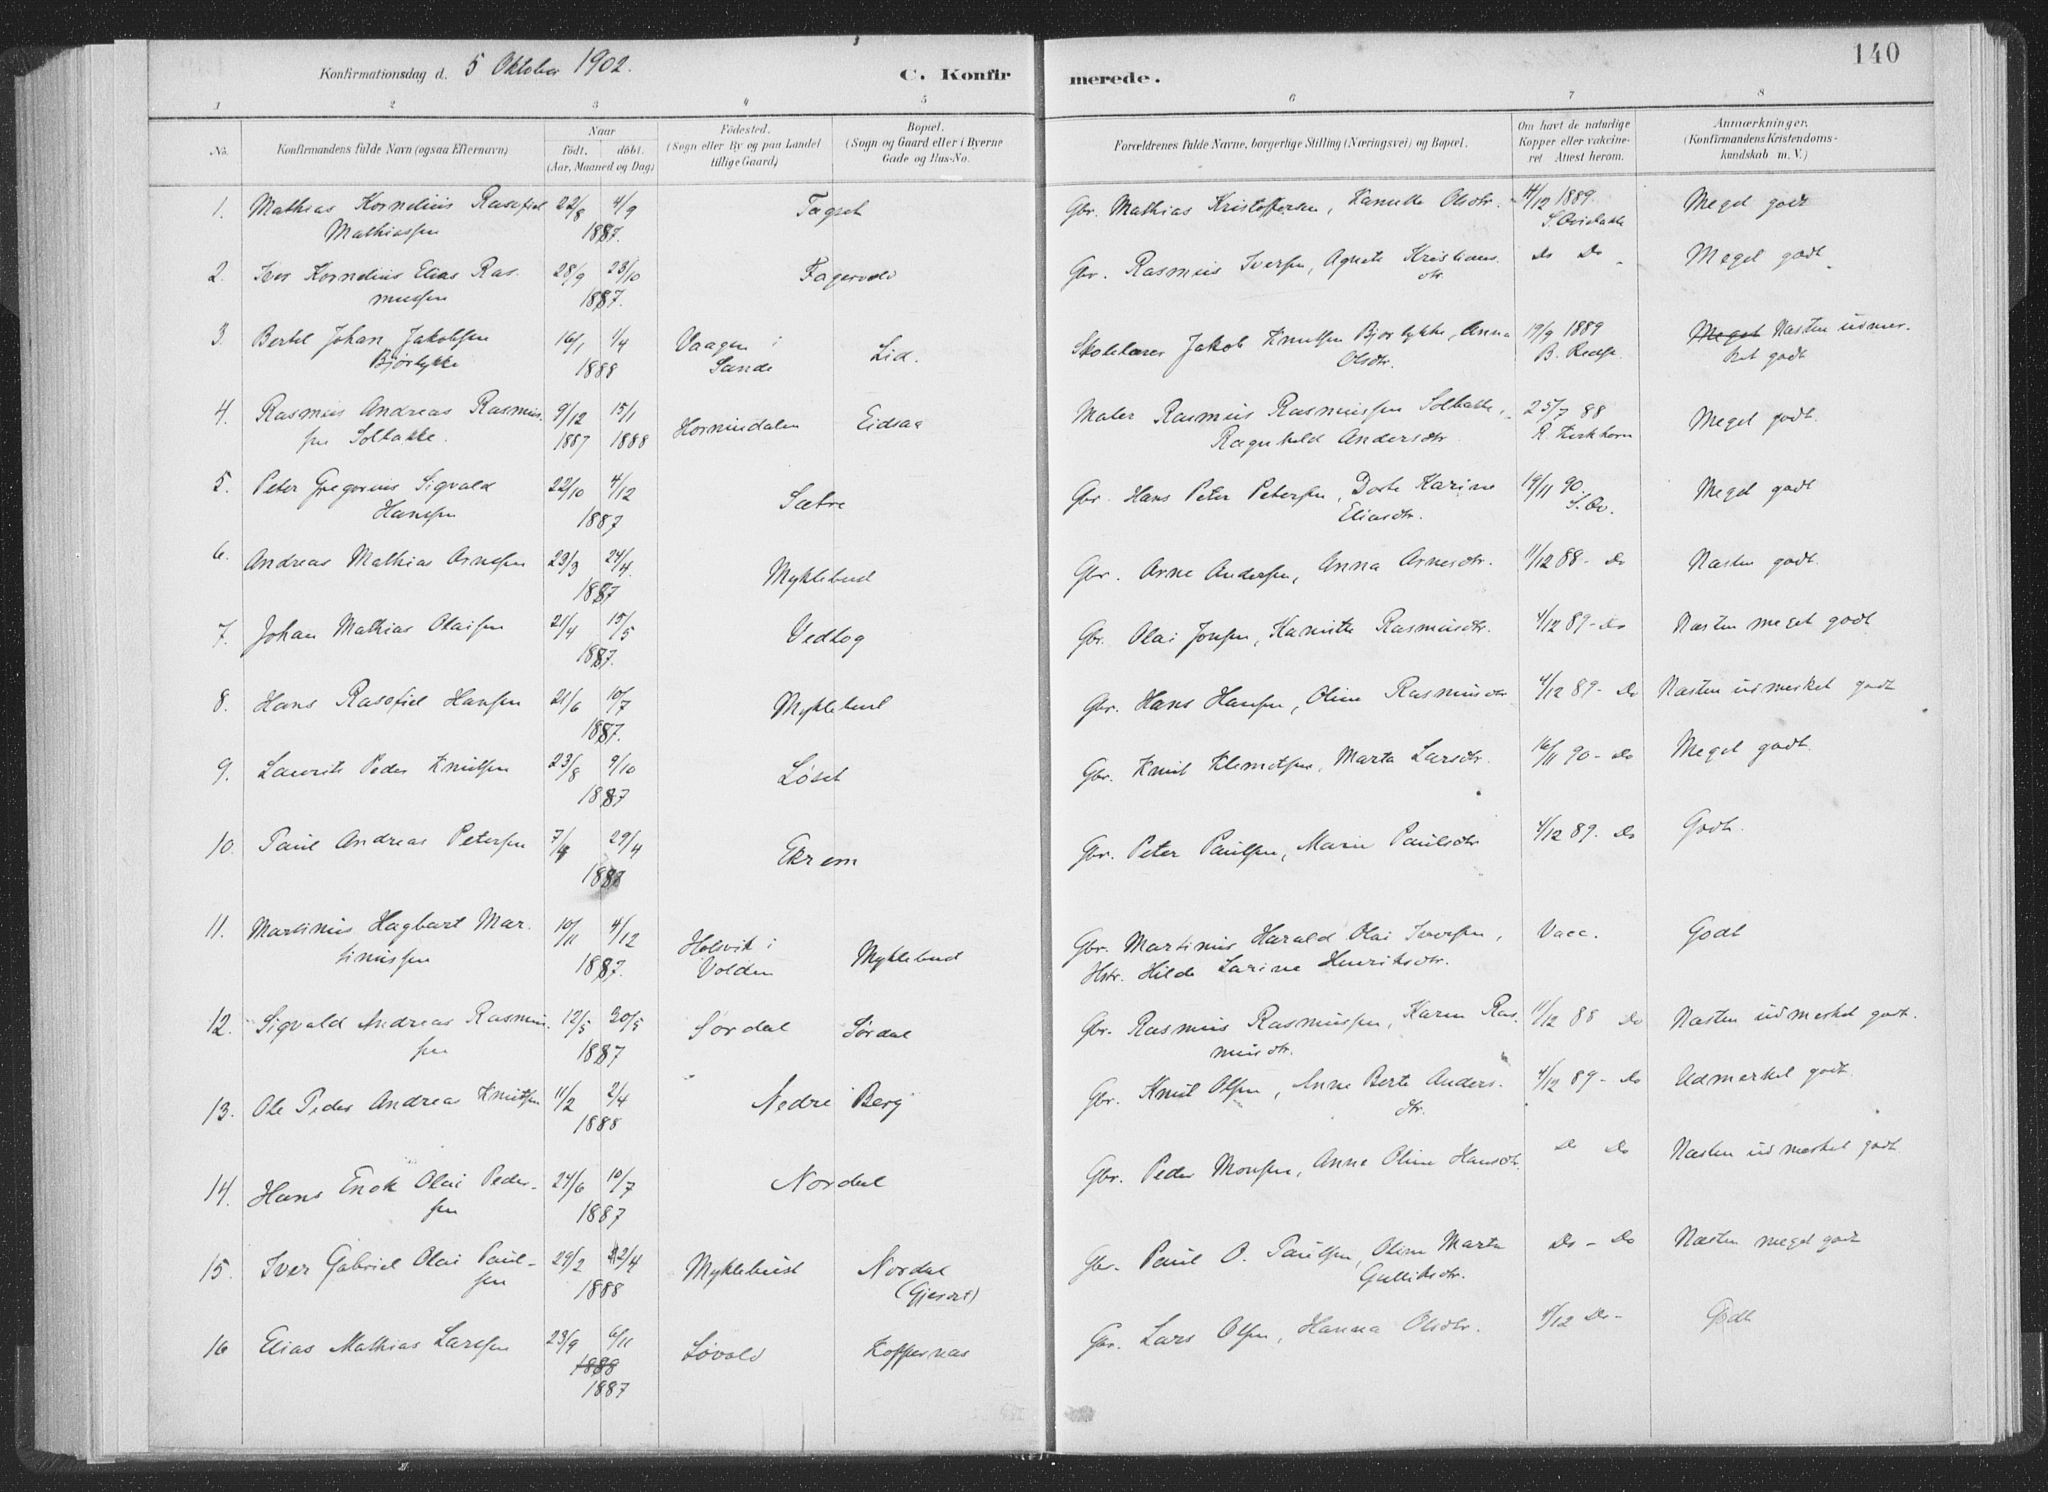 140
Konfirmationsdag d. 5 Oktober 1902. C. Konfirmerede.
1 2 3 4 5 6 7 8
No. Konfirmandens fulde Navn (ogsaa Efternavn) Naar Födt. döbt. (Aar, Maaned og Dag) Födested. (Sogn eller By og paa Landet tillige Gaard) Bopæl. (Sogn og Gaard eller i Byerne Gade og Hus-No. Forældrenes fulde Navne, borgerlige Stilling (Næringsvei) og Bopæl. Om havt de naturlige Kopper eller vakcineret Attest herom. Anmærkninger. (Konfirmandens Kristendomskundskab m. V.)
1. Mathias Kornelius Rasofiel 22/8 4/9 Fagset Gbr. Mathias Kristoffersen, Olsdtr. 4/12 1889. Meget godt
Mathiassen 1887.
2. Iver Kornelius Elias Ras- 28/9 23/10 Fagervold Gbr. Rasmus Iversen, Agnete Kristians- Do Do - Meget godt
mussen 1887. dtr.
3. Bertel Johan Jakobsen 16/1 1/4 Vaagen i Lid. Skolelærer Jakob Knutsen Bjørlykke, Anna 19/9 1889 Meget Næsten udmer-
Bjørlykke 1888 Sande Olsdtr. ket godt
4. Rasmus Andreas Rasmus- 9/12 15/1 Hornindalen Eidsaa Maler Rasmus Rasmussen Solbakke, 25/7 88 Meget godt.
sen Solbakke. 1887 1888 Ragnhild Andersdtr. R. Kirkhorn
5. Peter Gregorius Sigvald 22/10 4/12 Sætre Gbr. Hans Peter Petersen, Dorte Karine 19/11 90. Meget godt
Hansen 1887 Eliasdtr. S. Ov.
6. Andreas Mathias Arnesen 23/3 24/4. Myklebust Gbr. Arne Andersen, Anna Arnesdtr. 11/12 88 - Do Næsten godt.
1887
7. Johan Mathias Olaisen 21/4 15/5 Vedlog Gbr. Olai Jonsen, Rasmusdtr. 4/12 89 - Do Næsten meget godt
1887.
8. Hans Rasofiel Hansen 21/6 10/7 Myklebust Gbr. Hans Hansen, Oline Rasmusdtr 4/12 89 - Do Næsten udmerket godt
1887.
9. Laurits Peder Knutsen 23/8 9/10 Løset Gbr. Knut Klemetsen, Marta Larsdtr. 16/11 90 - Do Meget godt.
1887
10. Paul Andreas Petersen 7/4 29/4 Ekrem Gbr. Peter Paulsen, Marie Paulsdtr 4/12 89. Do Godt.
1887
11. Martinus Hagbart Mar- 10/11 4/12 Holsvik i Myklebust Gbr. Martinus Harald Olai Iversen, Vacc. Godt
tinussen 1887. Volden Hstr. Hilde Larine Henriksdtr.
12. Sigvald Andreas Rasmus- 12/5 30/5 Sørdal Sørdal Gbr. Rasmus Rasmussen, Karen Ras- 11/12 88 Do Næsten udmerket godt.
sen 1887 musdtr.
13. Ole Peder Andrea Knutsen 11/2 2/4 Nedre Berg Gbr. Knut Olsen, Anne Berte Anders- 4/12 89 - Do Udmerket godt.
1888 dtr.
14. Hans Enok Olai Peder- 24/6 10/7 Nordal Gbr. Peder Monsen, Anne Oline Hansdtr. Do Do Næsten udmerket godt
sen 1887
15. Iver Gabriel Olai Paul- 29/2 22/4 Myklebust Nordal Gbr. Paul O. Paulsen, Oline Marta Do - Do Næsten meget godt
sen 1888 (Gjerdet) Gulliksdtr.
16 Elias Mathias Larssen 23/9 6/11 Løvold Koppernæs Gbr. Lars Olsen, Hanna Olsdtr. 4/12 Do - Godt
1888
1887